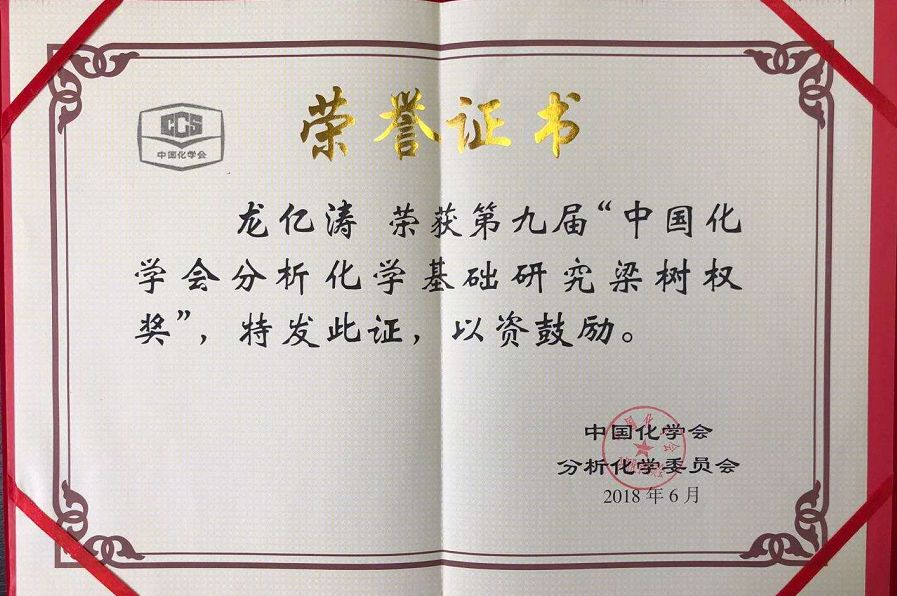 CCS
中国化学会
荣誉证书
龙亿涛 荣获第九届“中国化
学会分析化学基础研究梁树权
奖”，特发此证，以资鼓励。
中国化学会
分析化学委员会
2018 年 6 月